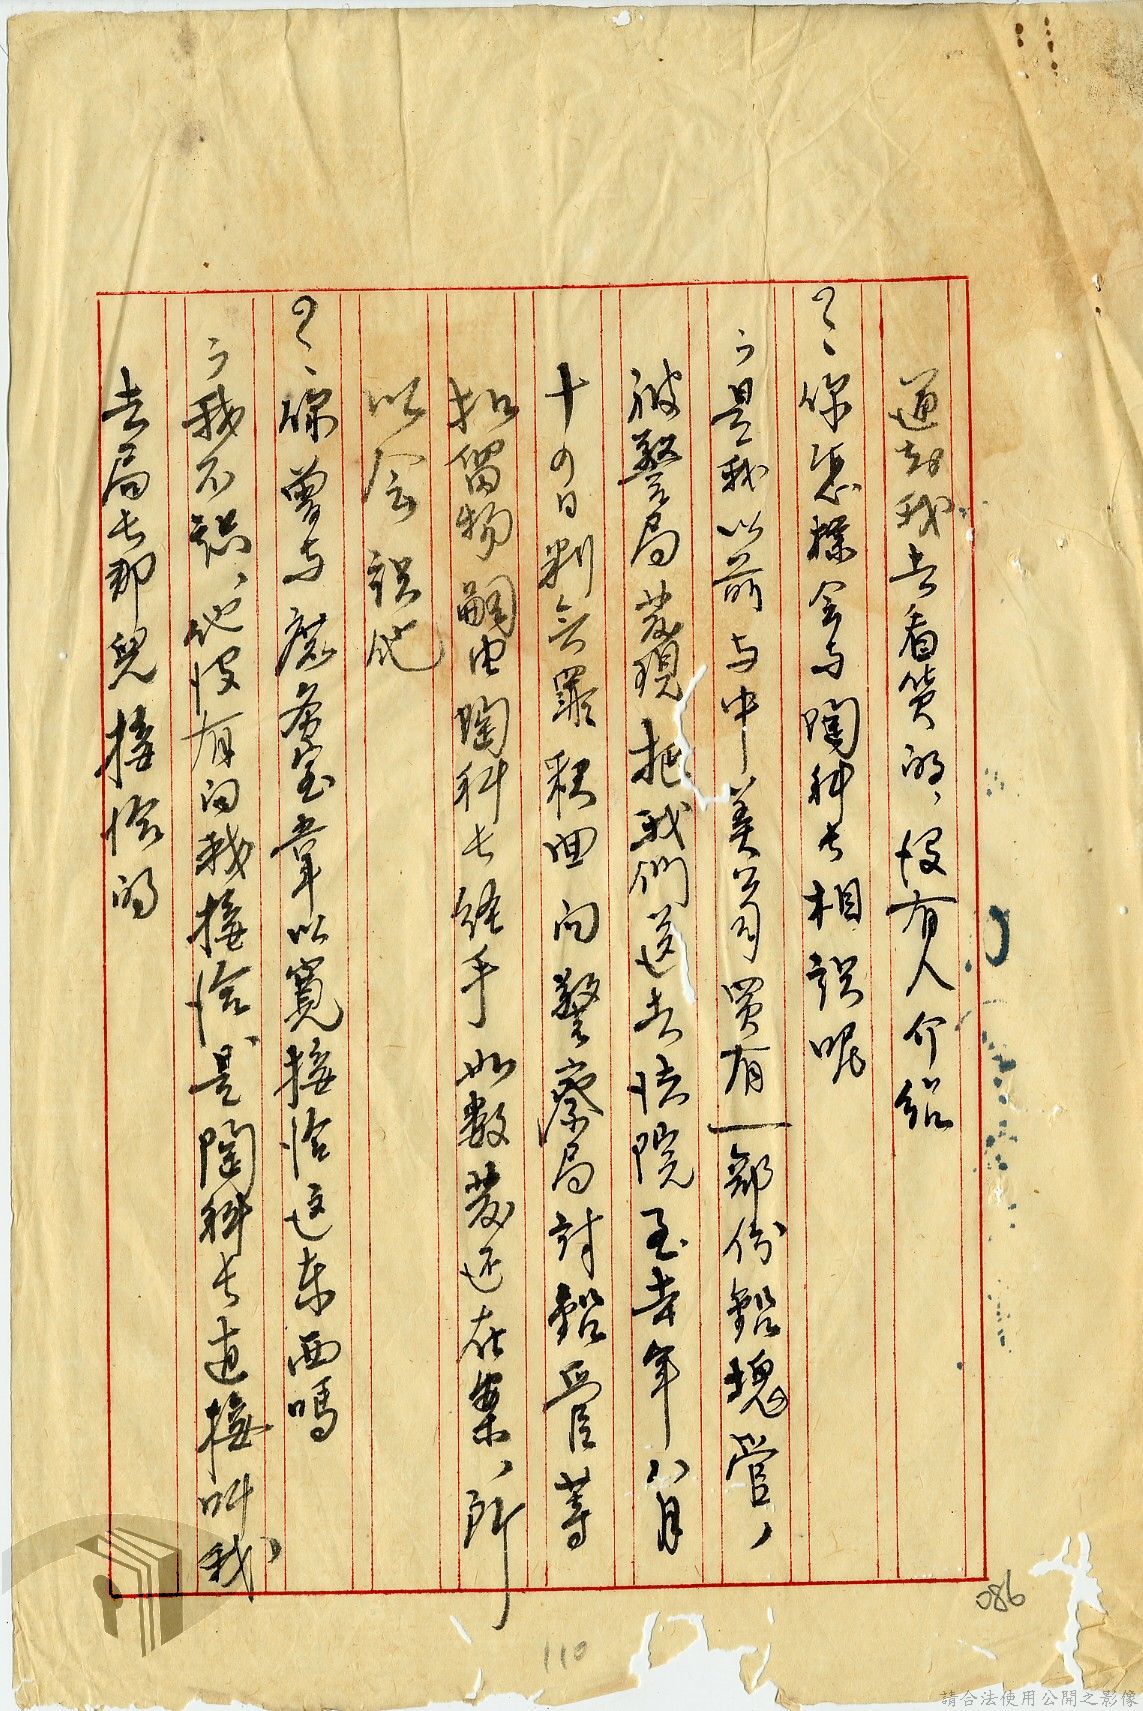 通知我去看貨的、沒有人介紹
？、你怎樣會与陶科长相識呢
ㄅ是我以前与中美公司買有一部份鉛塊管、
被警局發現把我們送去法院至去年八月
十四日判無罪釈回向警察局討鉛管等
扣留物嗣由陶科长経手如数發还在案、所
以会識他
？、你曾与庶务室韋以寬接洽这东西嗎
ㄅ我不認、他沒有向我接洽是陶科长直接叫我
去局长那兒接洽的
086
110
請合法使用公開之影像